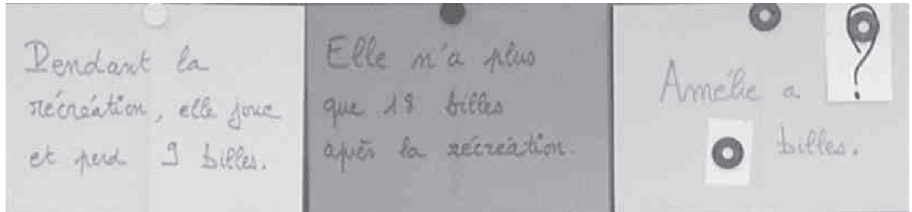 Pendant la
récréation, elle joue
et perd 9 billes.
Elle n'a plus
que 18 billes
après la récréation.
?
Amélie a
billes.